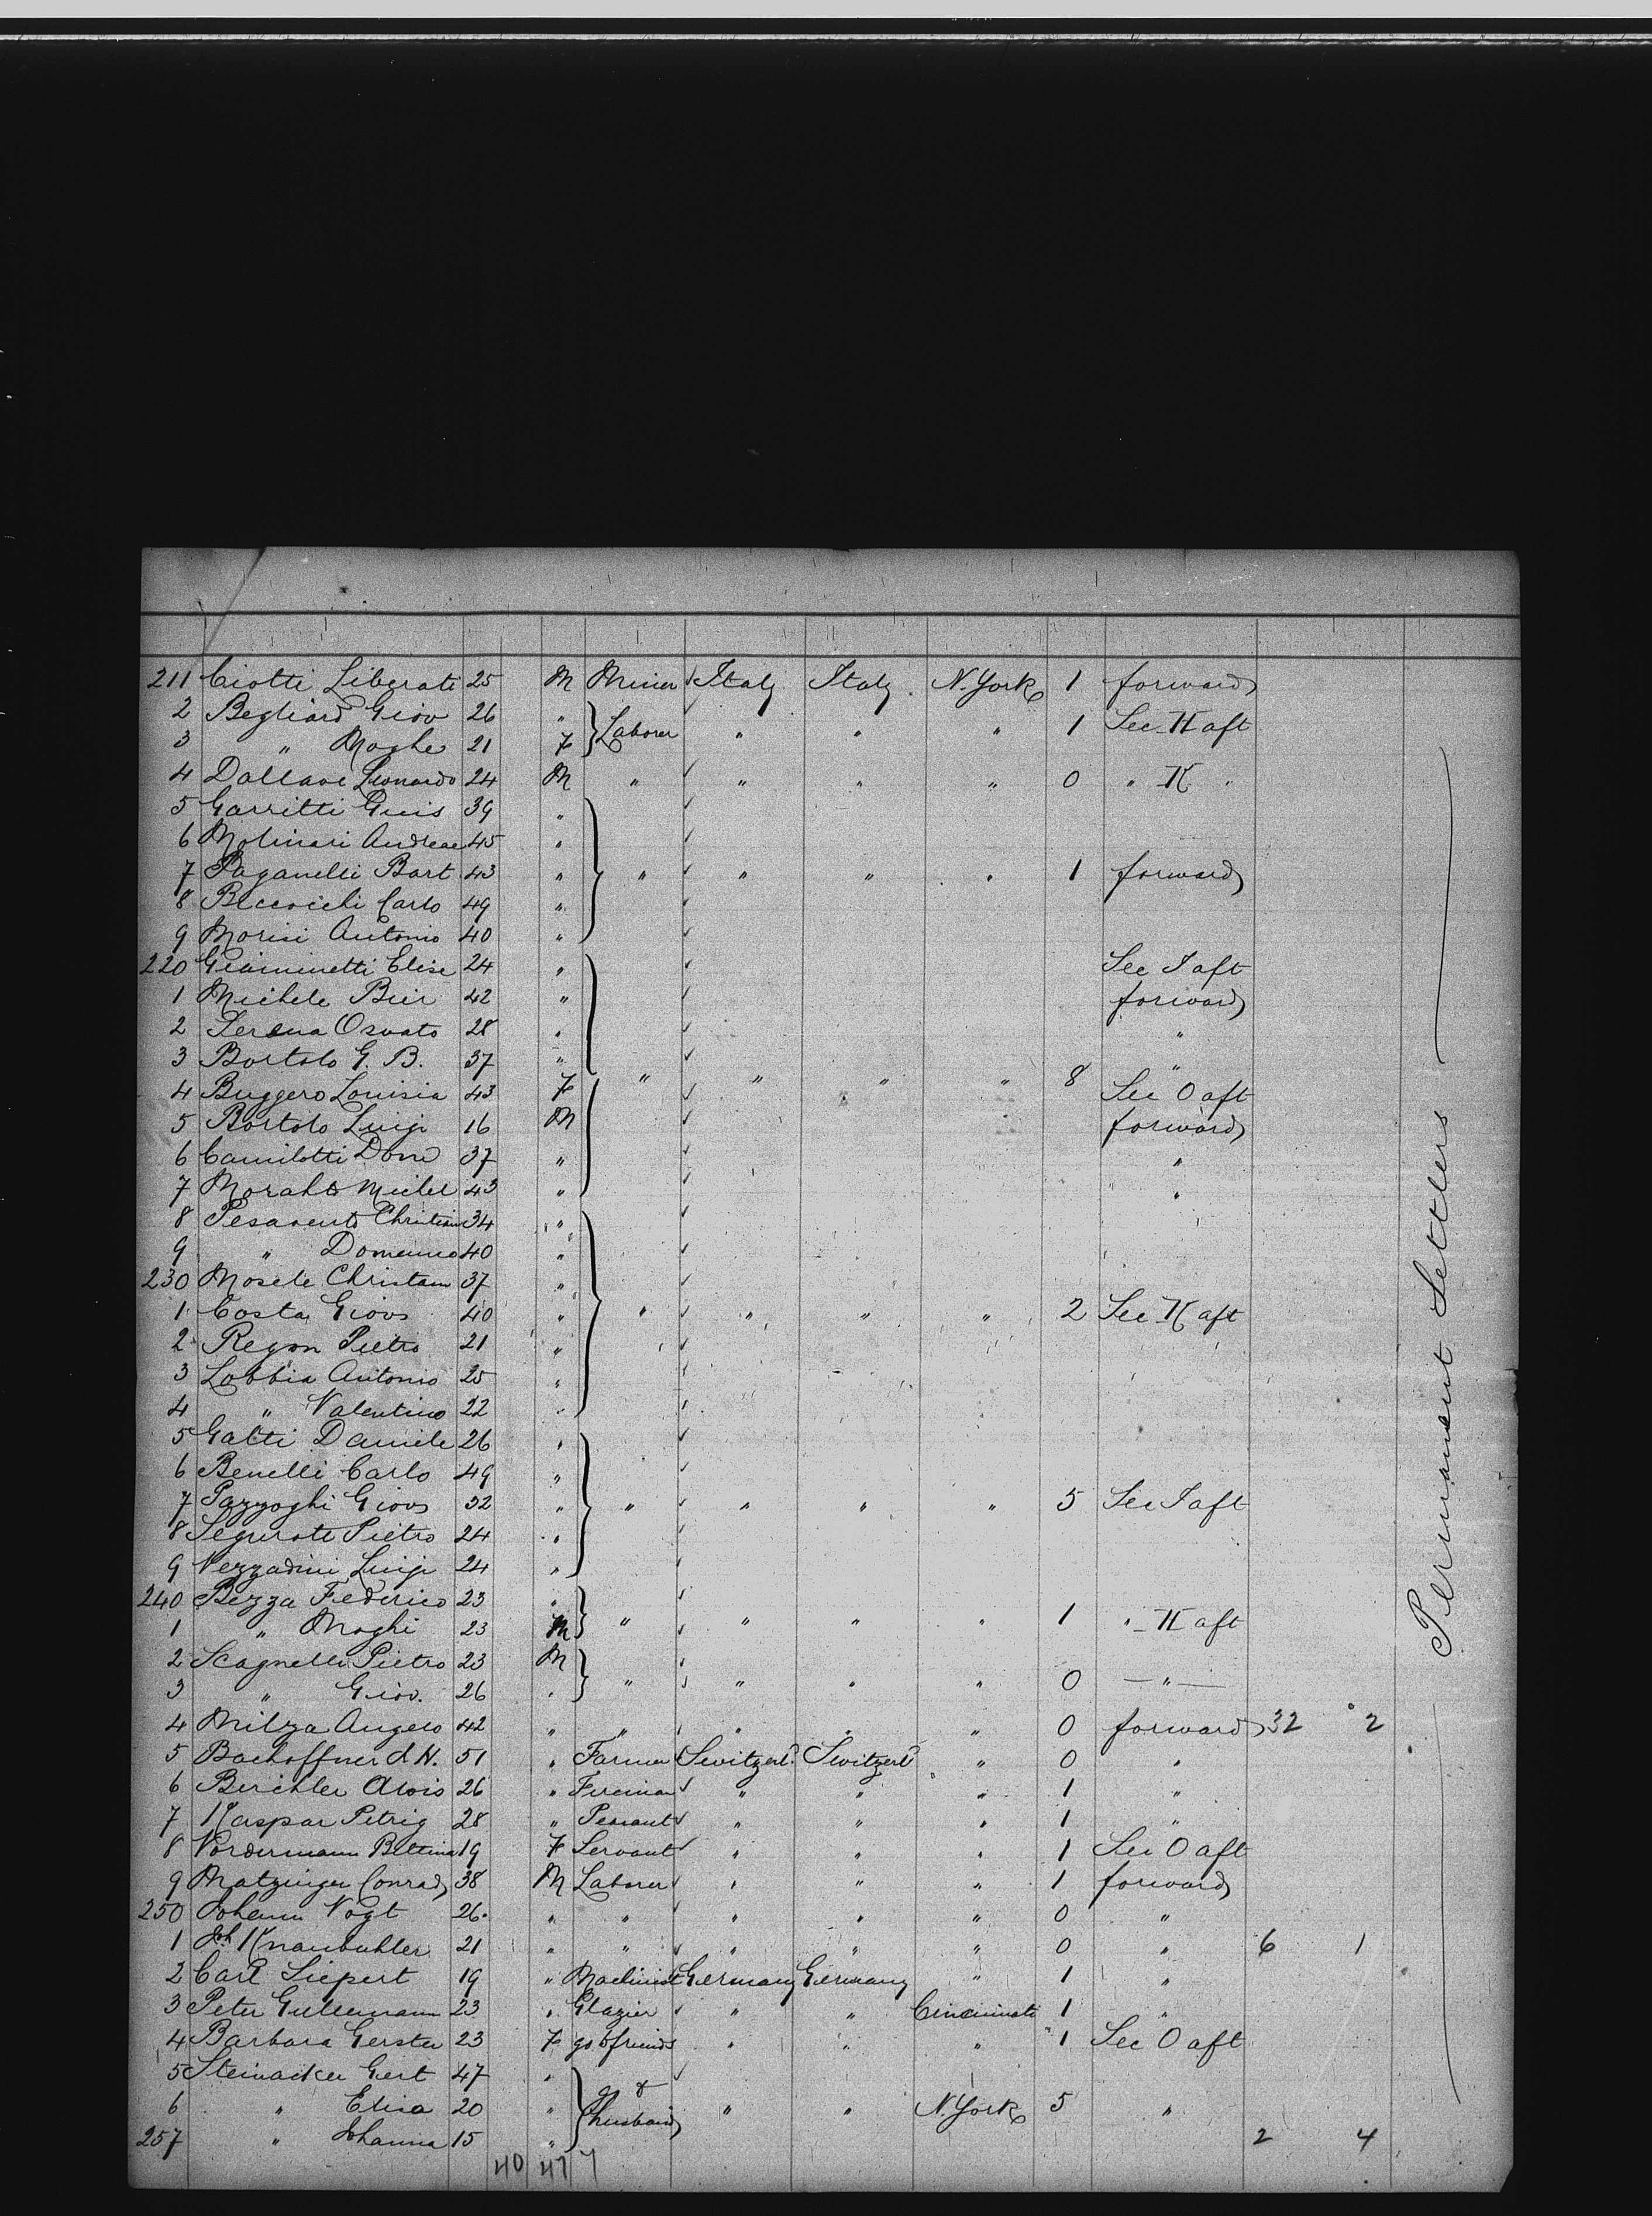 211 Ciotti Liberati 25 M Miner Italy Italy N. York 1 forward
2 Begliard Giov 26 "
3 " Maghe 21 F Laborer " " " 1 See K aft
4 Dallave Leonardo 24 M " " " " 0 " K "
5 Garritti Guis 39 "
6 Molinari Andreae 45 "
7 Paganelli Bart 43 " " " " " 1 forward
8 Beccocichi Carlo 49 "
9 Morisi Antonio 40 "
220 Elise 24 " See I aft
1 Michele Bier 42 " forward
2 Serena Osvato 28 " "
3 Bortolo G. B. 37 " " " " " 8 "
4 Buggero Louisia 43 F See O aft
5 Bortolo Luigi 16 M forward
6 Camilotti Dom 37 " "
7 Michel 43 " "
8 Pesavento Christian 34 "
9 " Domenico 40 "
230 Mosele Christain 37 "
1 Costa Giovs 40 " " " " " 2 See K aft
2 Regon Pietro 21 "
3 Lobbia Antonio 25 "
4 " Valentino 22 "
5 Gatti Daniele 26 "
6 Benelli Carlo 49 "
7 Pazzoghi Giovs 32 " " " " " 5 See I aft
8 Pietro 24 "
9 Vezzadini Luigi 24 "
240 Bezza Federico 23 "
1 " Maghi 23 M " " " " 1 " K aft
2 Scagnelli Pietro 23 M
3 " Giov. 26 " " " " " 0 "
4 Milza Angelo 42 " " " " " 0 forward 32 2
5 Bachoffner d. H. 51 " Farmer Switzerld. Switzerld " 0 "
6 Berchler Alois 26 " Fireman " " " 1 "
7 Kaspar Petrig 28 " Peasant " " " 1 "
8 Vordermann Bettina 19 F Servant " " " 1 See O aft
9 Matzinger Conrad 38 M Laborer " " " 1 forward
250 Johann Vogt 26 " " " " " 0 "
1 Joh Knaubuhler 21 " " " " " 0 " 6 1
2 Carl Siepert 19 " Machinist Germany Germany " 1 "
3 Peter Gullemann 23 " Glazier " " Cincinnati 1 "
4 Barbara Gerster 23 F go to friends " " " 1 See O aft
5 Steinacker Gert 47 "
6 " Elisa 20 " go to husband " " N. York 5 "
257 " Johanna 15 " 2 4
40 47 7
Permanent Settlers